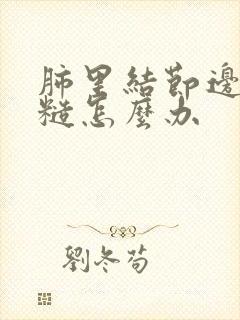 肺里結節邊
糙怎麼办
劉冬苟